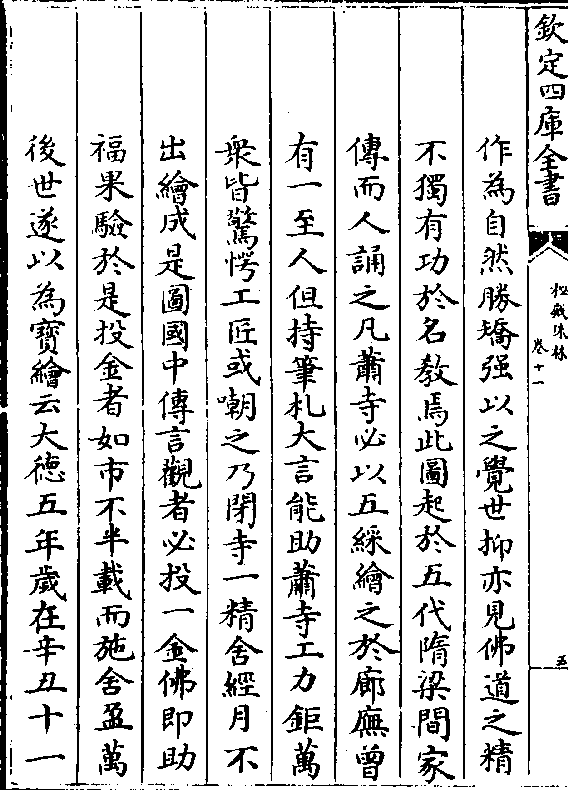 欽定四庫全書
秘殿珠林
卷十一
五
作為自然勝矯强以之覺世抑亦見佛道之精
不獨有功於名教焉此圖起於五代隋梁間家
傳而人誦之凡蕭寺必以五綵繪之於廊廡曽
有一至人但持筆札大言能助蕭寺工力鉅萬
衆皆驚愕工匠或嘲之乃閉寺一精舍經月不
出繪成是圖國中傳言觀者必投一金佛即助
福果驗於是投金者如市不半載而施舍盈萬
後世遂以為寳繪云大德五年歲在辛丑十一